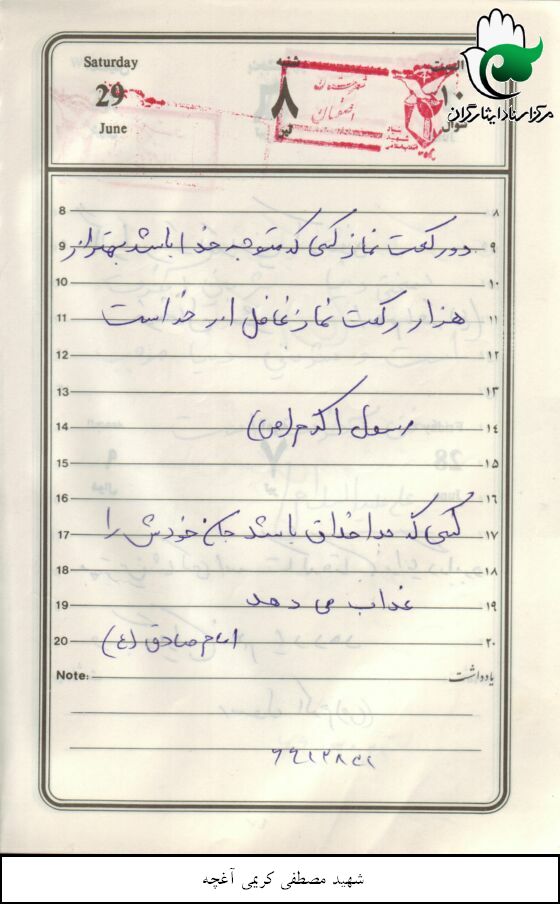 Saturday شنبه السبت
29 ۸ ۱۰
June تیر شوال
مرکز اسناد ایثارگران
اصفهان
8 ۸
9 دو رکعت نماز کسی که متوجه خدا باشد بهتر از ۹
10 ۱۰
11 هزار رکعت نماز غافل از خداست ۱۱
12 ۱۲
13 ۱۳
14 رسول اکرم (ص) ۱۴
15 ۱۵
16 ۱۶
17 کسی که بداخلاق باشد جان خودش را ۱۷
18 ۱۸
19 عذاب می دهد ۱۹
20 امام صادق (ع) ۲۰
Note: یادداشت
شهید مصطفی کریمی آغچه